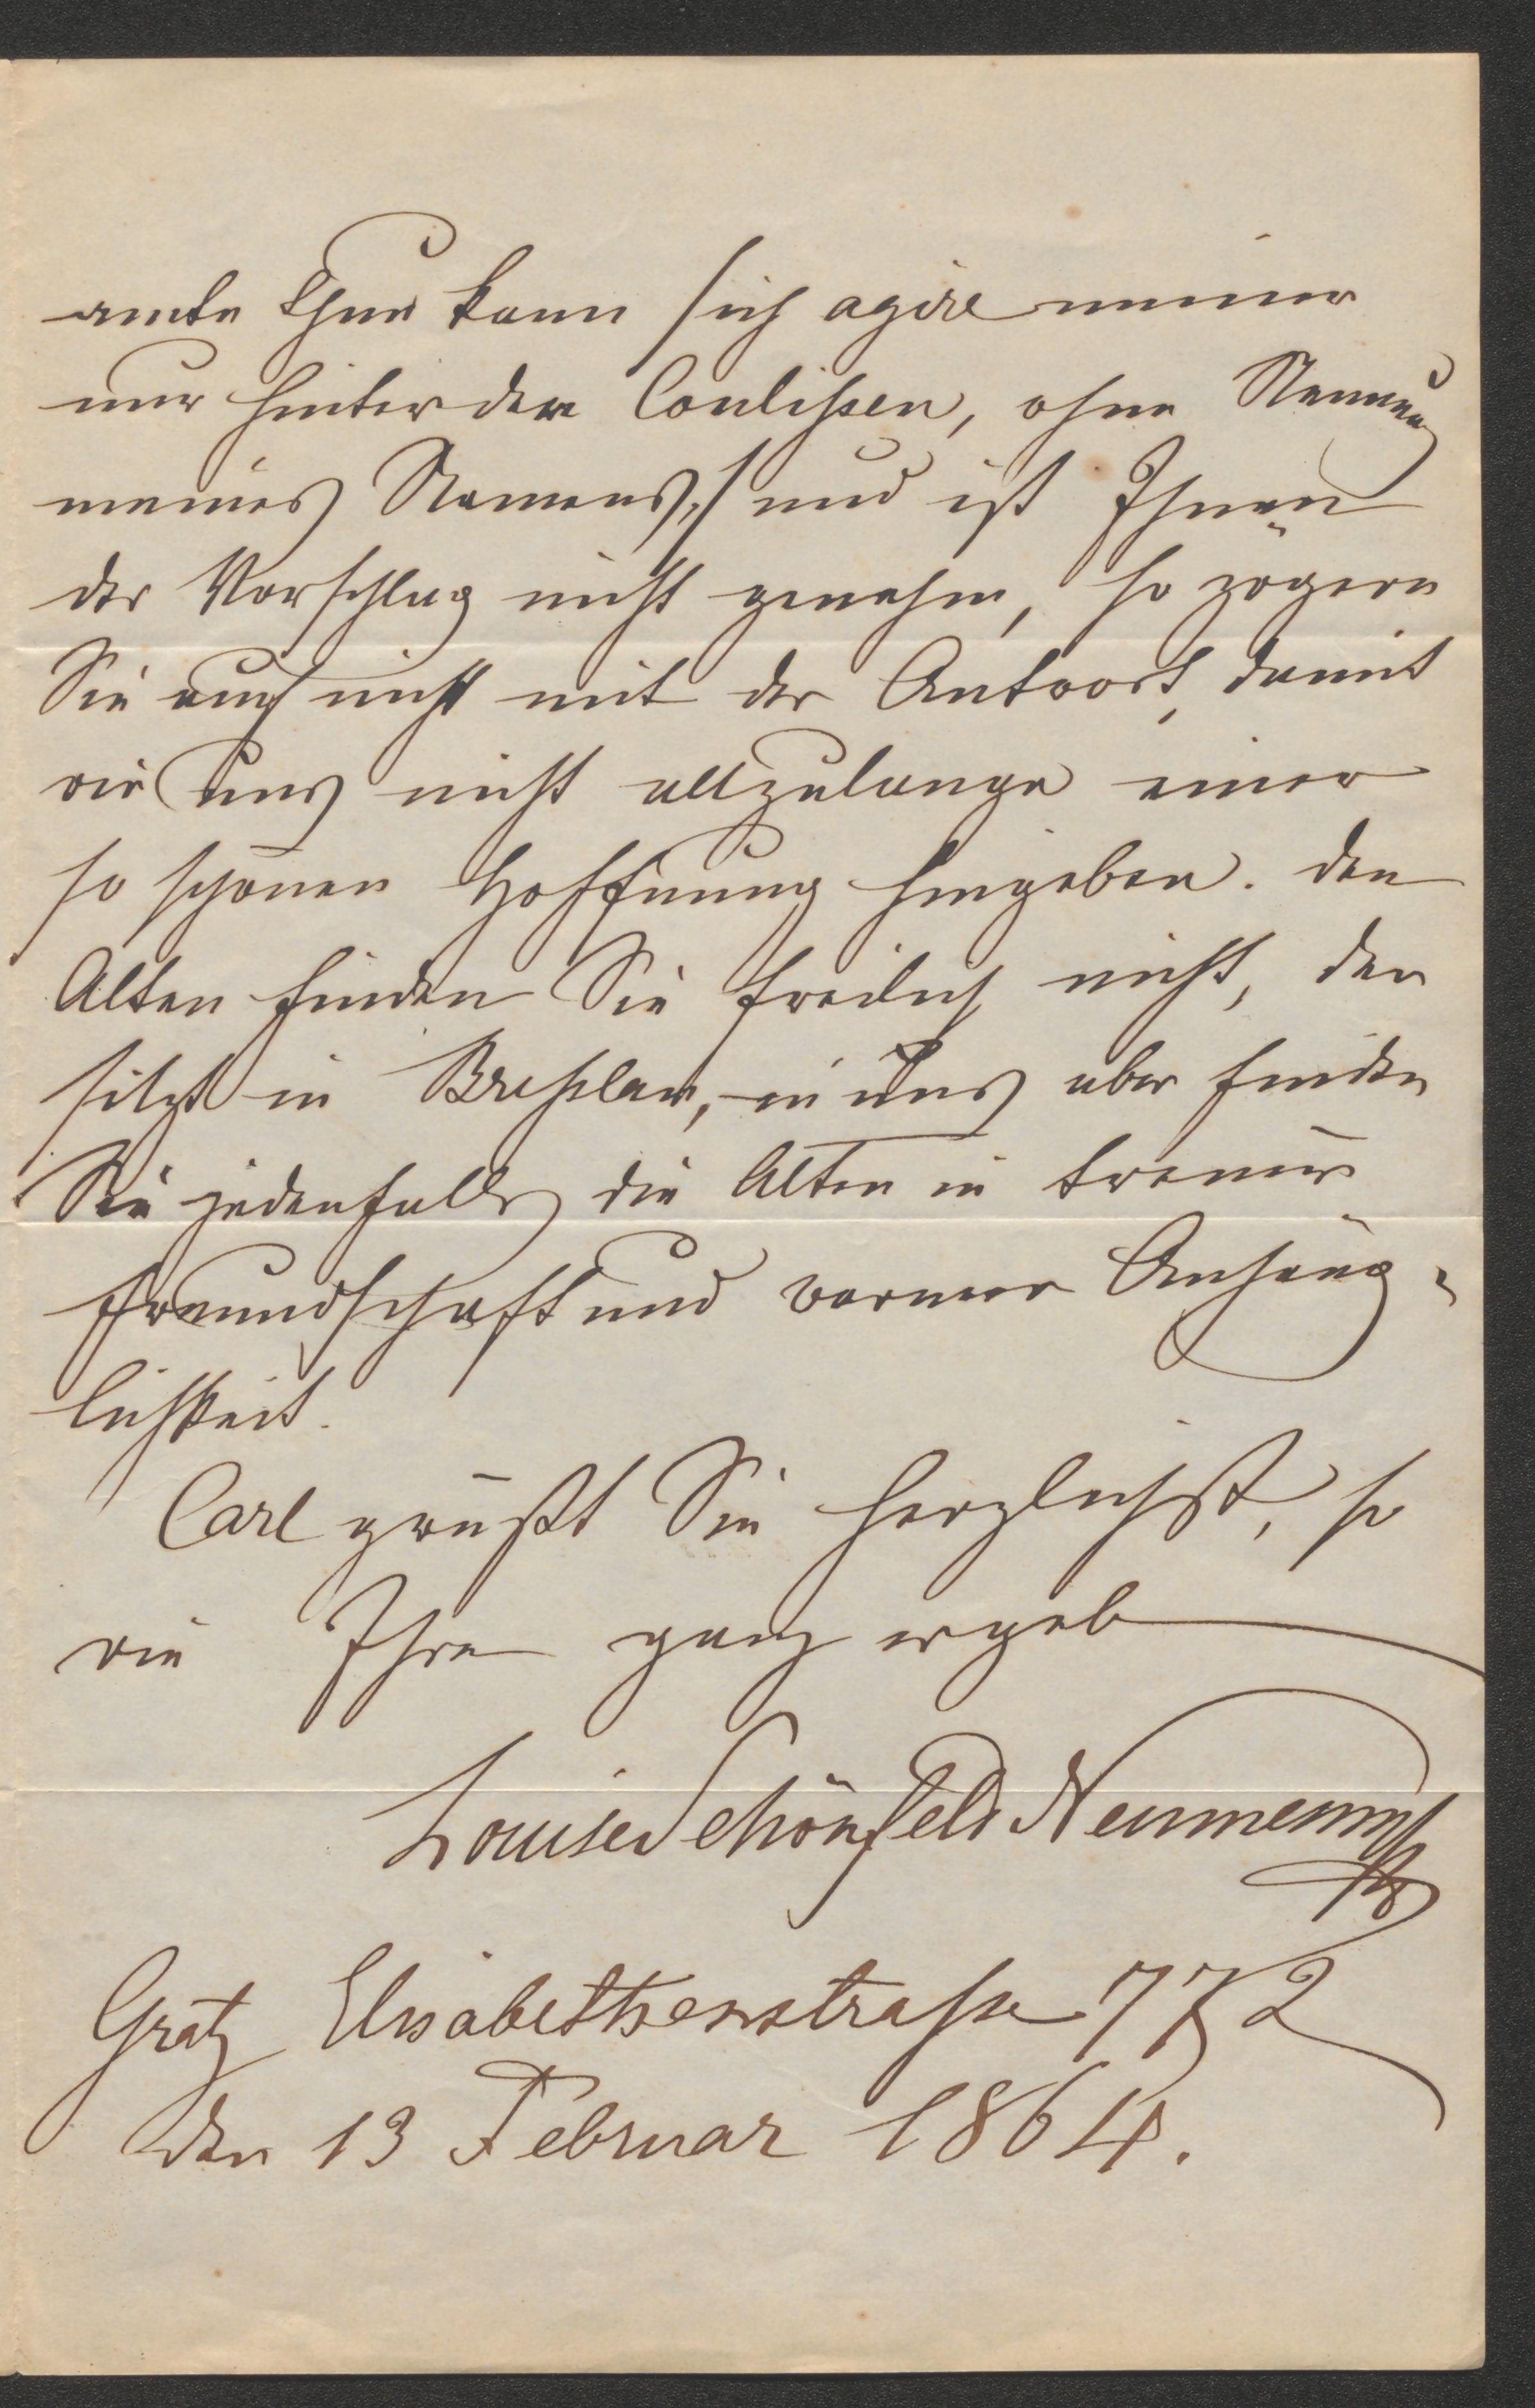 amte thun kann /ich agire immer
nur hinter den Coulißen, ohne Nennung
meines Namens,/ und ist Ihnen
der Vorschlag nicht genehm, so zögern
Sie auch nicht mit der Antwort, damit
wir uns nicht allzulange einer
so schönen Hoffnung hingeben. den
Alten finden Sie freilich nicht, der
sitzt in Breßlau, in uns aber finden
Sie jedenfalls die Alten in treuer
Freundschaft und warmer Anhäng=
lichkeit.
Carl grüßt Sie herzlichst, so
wie Ihre ganz ergeb
Louise Schönfeld Neumann
Gratz Elisabethenstraße 772
den 13 Februar 1864.